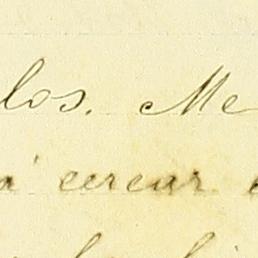 los. Me
a cercar